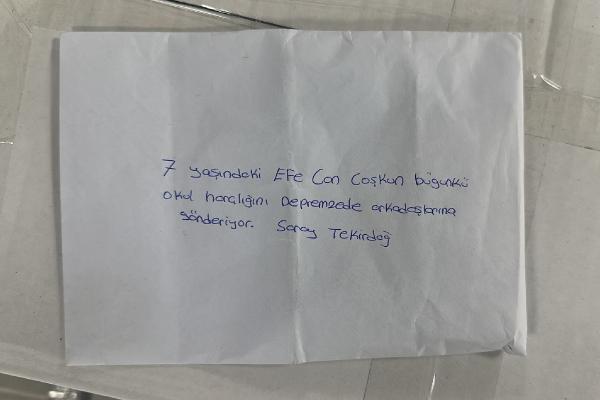 7 yaşındaki Efe Can Coşkun bügünkü
okul harçlığını Depremzede arkadaşlarına
gönderiyor. Saray Tekirdağ